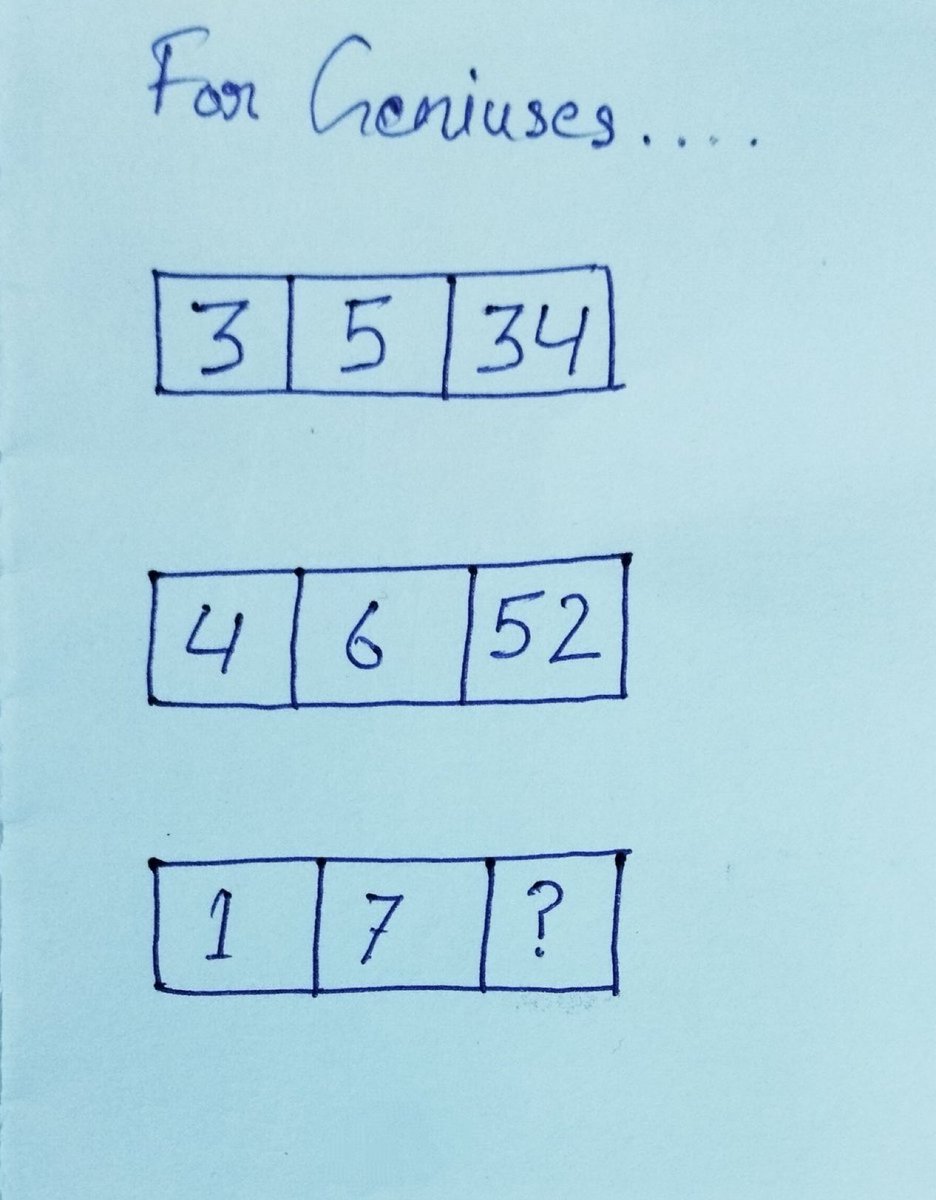 For Geniuses.....
3 5 34
4 6 52
1 7 ?